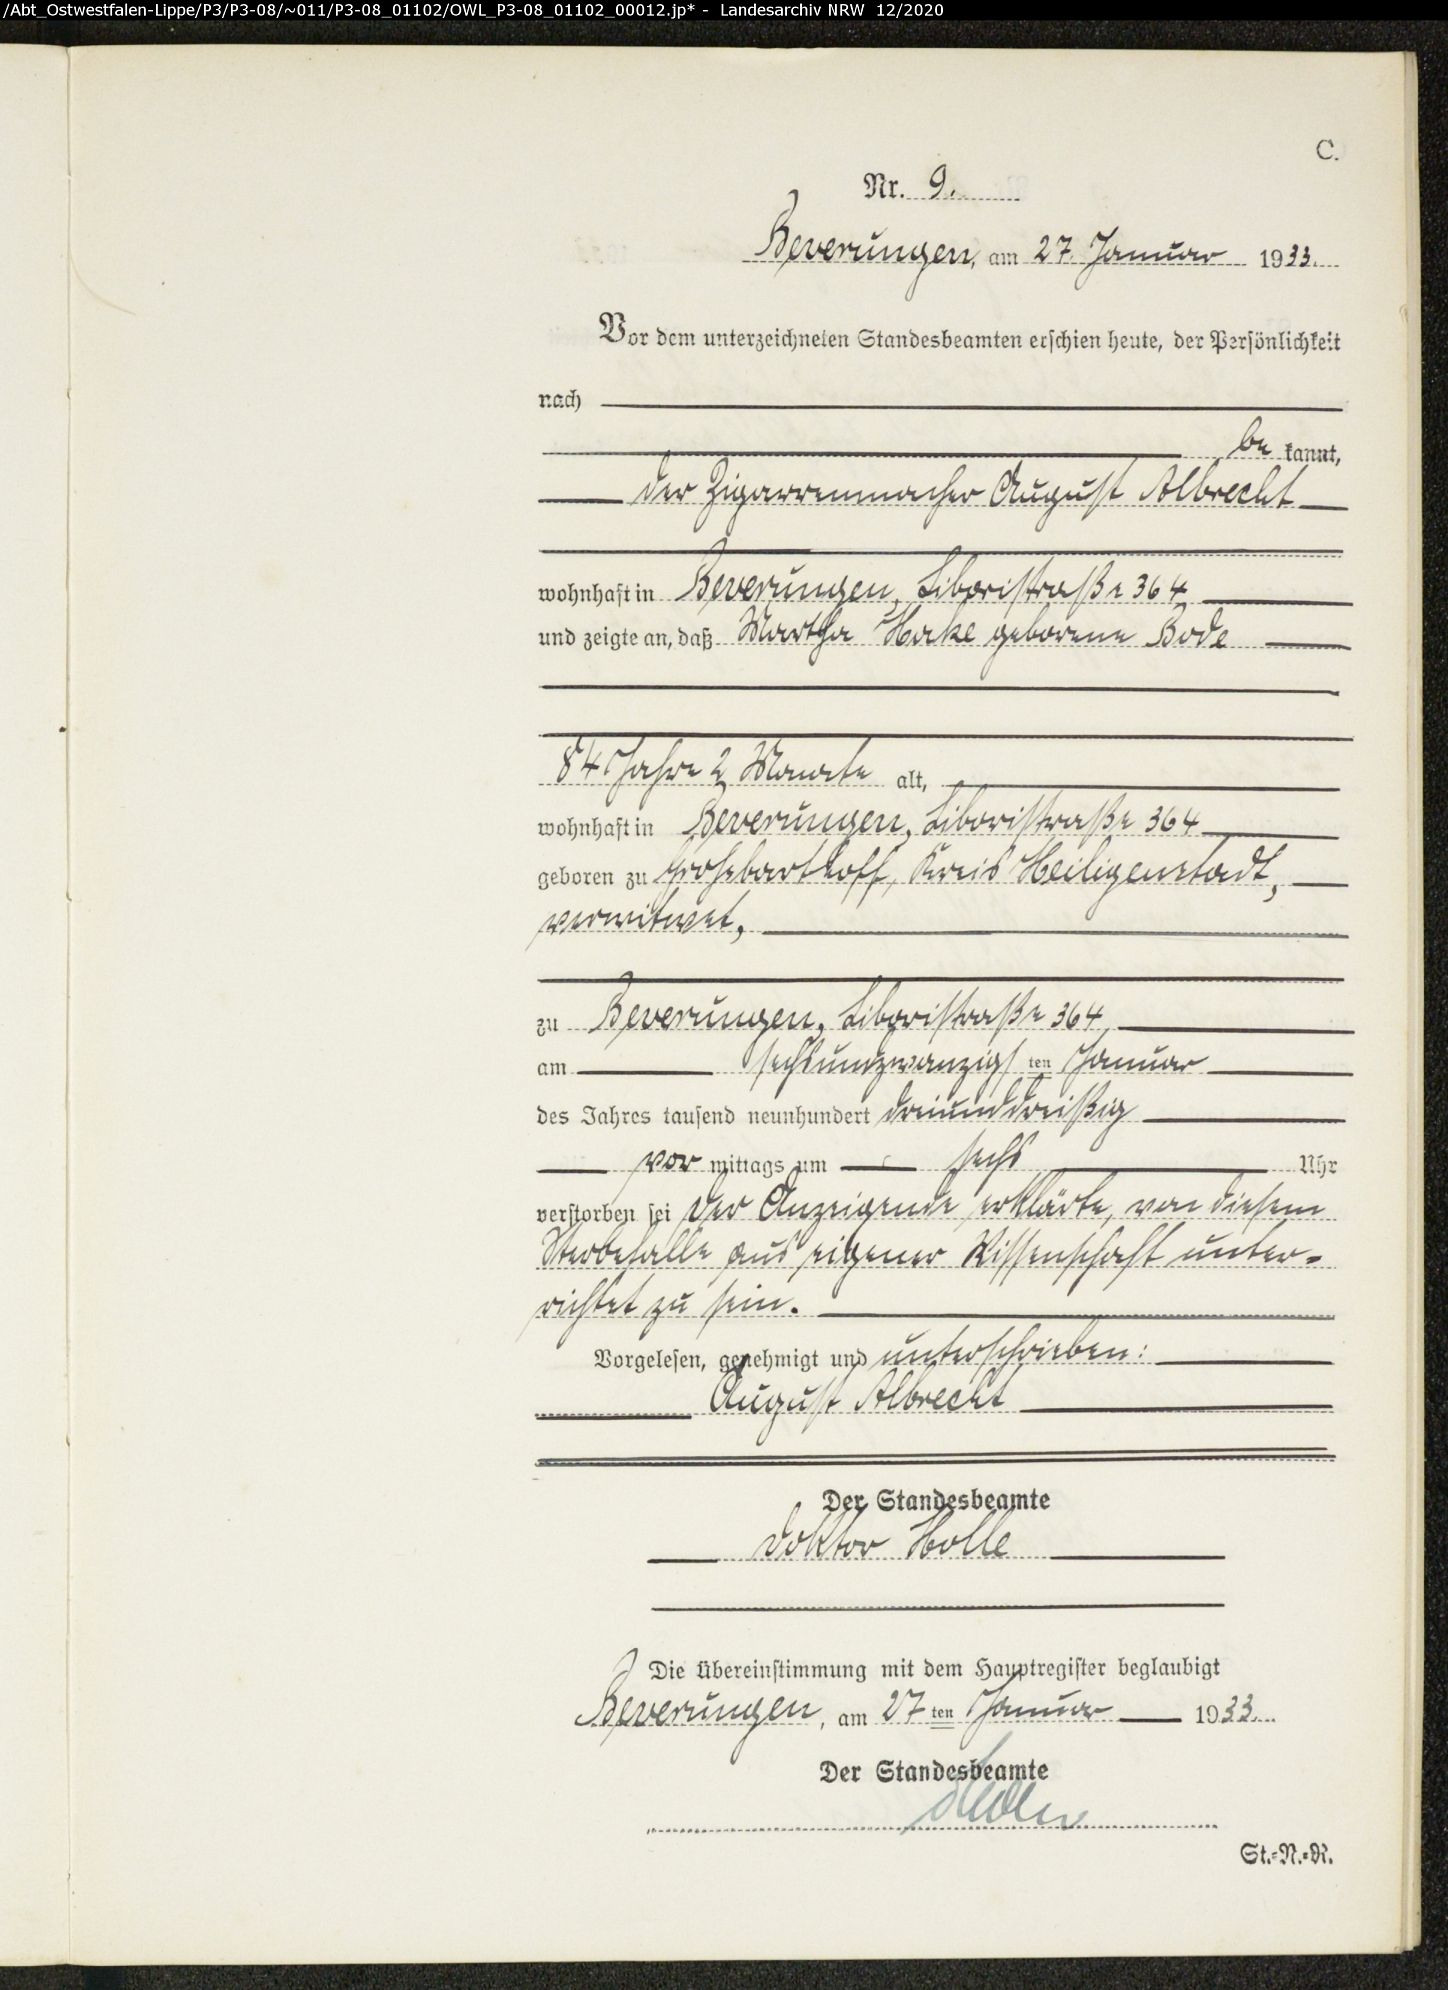 /Abt_Ostwestfalen-Lippe/P3/P3-08/~011/P3-08_01102/OWL_P3-08_01102_00012.jp* - Landesarchiv NRW 12/2020
C.
Nr. 9.
Beverungen, am 27. Januar 1933.
Vor dem unterzeichneten Standesbeamten erschien heute, der Persönlichkeit
nach
be kannt,
der Zigarrenmacher August Albrecht
wohnhaft in Beverungen, Liboristraße 364
und zeigte an, daß Martha Hake geborene Bode
84 Jahre 2 Monate alt,
wohnhaft in Beverungen, Liboristraße 364
geboren zu Großbartloff, Kreis Heiligenstadt,
verwitwet,
zu Beverungen, Liboristraße 364
am sechsundzwanzigsten Januar
des Jahres tausend neunhundert dreiunddreißig
vor mittags um sechs Uhr
verstorben sei Der Anzeigende erklärte, von diesem
Sterbefalle aus eigener Wissenschaft unter-
richtet zu sein.
Vorgelesen, genehmigt und unterschrieben:
August Albrecht
Der Standesbeamte
Doktor Holle
Die Übereinstimmung mit dem Hauptregister beglaubigt
Beverungen, am 27ten Januar 1933.
Der Standesbeamte
St.-N.-R.